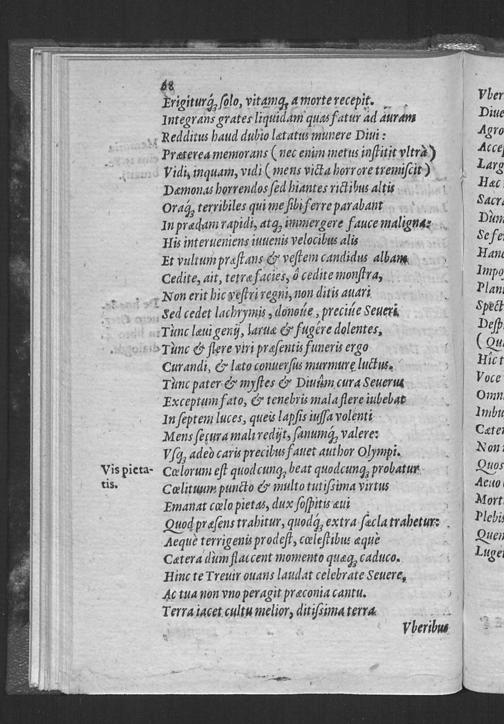 68
Erigiturq́; solo, vitamq́; a morte recepit.
Integrans grates liquidàm quas fatur ad auram
Redditus haud dubio lætatus munere Diui:
Præterea memorans (nec enim metus institit vltrà)
Vidi, inquam, vidi (mens victa horrore tremiscit)
Dæmonas horrendos sed hiantes rictibus altis
Oraq́; terribiles qui me sibi ferre parabant
In prædam rapidi, atq; immergere fauce maligna:
His interueniens iuuenis velocibus alis
Et vultum præstans & vestem candidus albam
Cedite, ait, tetræ facies, ô cedite monstra,
Non erit hic vestri regni, non ditis auari
Sed cedet lachrymis, donoúe, preciúe Seueri.
Tùnc læui genij, laruæ & fugêre dolentes,
Tùnc & flere viri præsentis funeris ergo
Curandi, & læto conuersus murmure luctus.
Tùnc pater & mystes & Diuûm cura Seuerus
Exceptum fato, & tenebris mala flere iubebat
In septem luces, queis lapsis iussa volenti
Mens secura mali redijt, sanumq́; valere:
Vsq́; adeò caris precibus fauet author Olympi.
Vis pieta-
tis.
Cœlorum est quodcunq́; beat quodcunq́; probatur
Cœlituum puncto & multo tutissima virtus
Emanat cœlo pietas, dux sospitis æui
Quod præsens trahitur, quodq́; extra sæcla trahetur:
Aequè terrigenis prodest, cœlestibus æquè
Cætera dùm flaccent momento quæq́; caduco.
Hinc te Treuir ouans laudat celebrate Seuere,
Ac tua non vno peragit præconia cantu.
Terra iacet cultu melior, ditissima terra
Vberibus
Vber
Diue
Agro
Accep
Larg
Hac
Sacra
Dùm
Se fer
Hanc
Impo
Plan
Spect
Desp
(Qu
Hic t
Voce
Omn
Imbu
Cæter
Non
Quos
Aeuo
Mort
Plebi
Quem
Luger